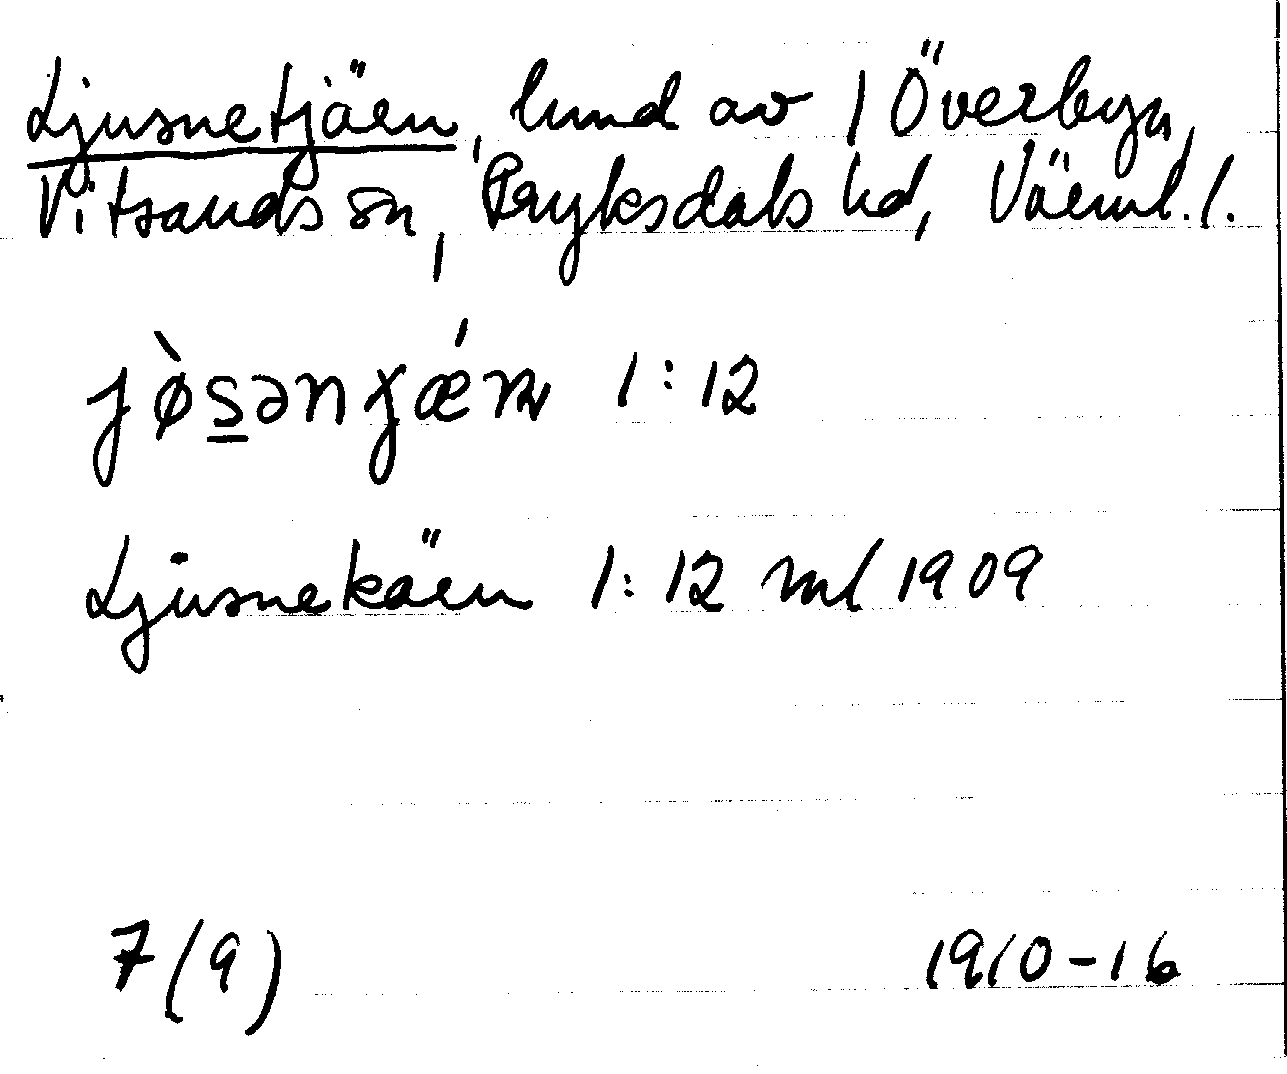 Ljusnetjärn, lund av 1 Överbyn,
Vitsands sn, Fryksdals hd, Värml. l.
jø̀s̲ənɟǽɳ 1:12
Ljūsnekärn 1:12 ml 1909
7 (9) 1910-16